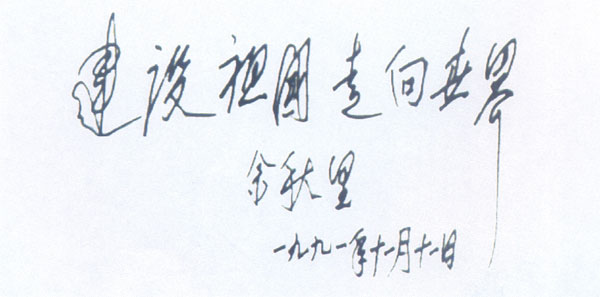 建设祖國走向世界
金秋里
一九九一年十一月十一日